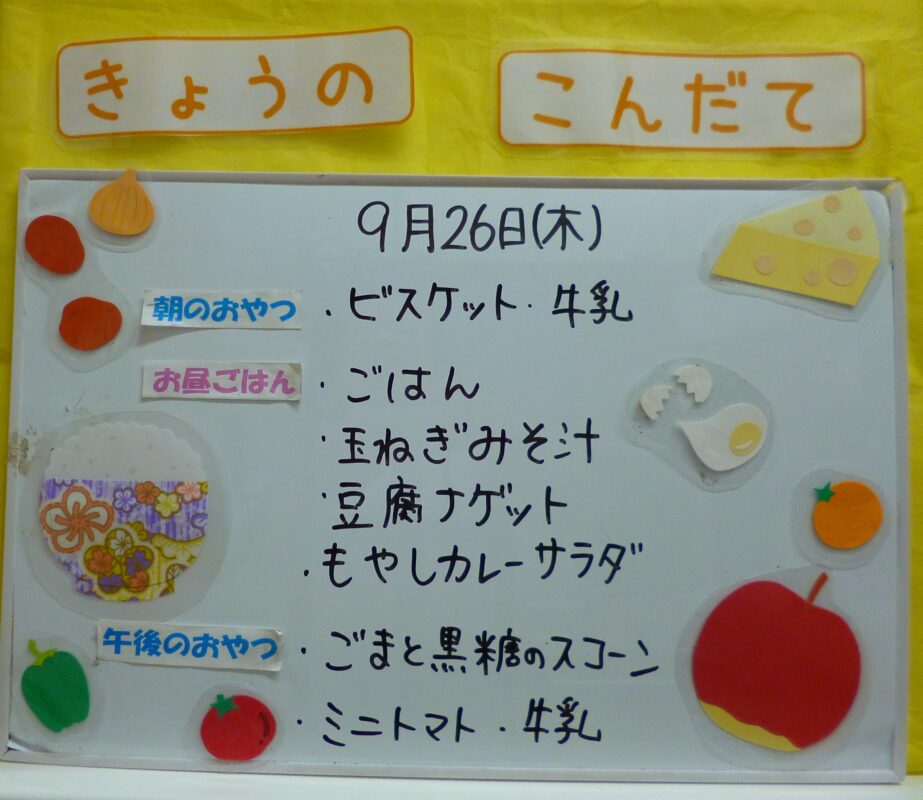 きょうの こんだて
9月26日(木)
朝のおやつ ・ビスケット・牛乳
お昼ごはん ・ごはん
・玉ねぎみそ汁
・豆腐ナゲット
・もやしカレーサラダ
午後のおやつ ・ごまと黒糖のスコーン
・ミニトマト・牛乳